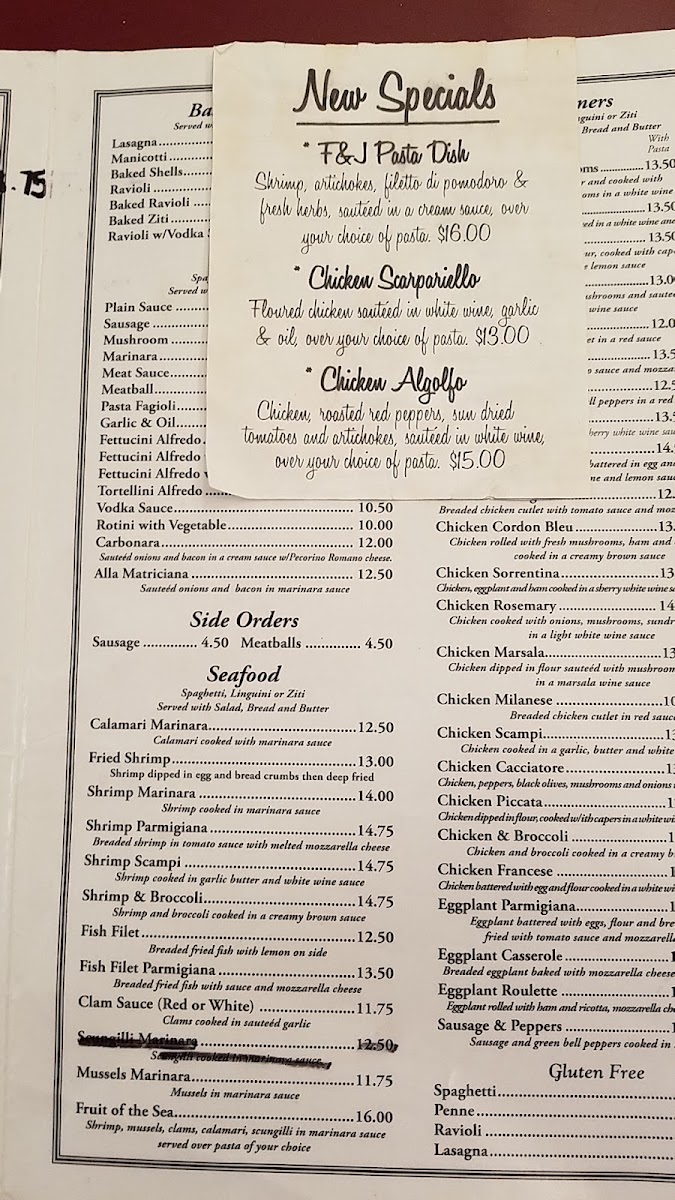 .75
New Specials
* F&J Pasta Dish
Shrimp, artichokes, filetto di pomodoro &
fresh herbs, sautéed in a cream sauce, over
your choice of pasta. $16.00
* Chicken Scarpariello
Floured chicken sautéed in white wine, garlic
& oil, over your choice of pasta. $13.00
* Chicken Algolfo
Chicken, roasted red peppers, sun dried
tomatoes and artichokes, sautéed in white wine,
over your choice of pasta. $15.00
Ba
Served w
Lasagna
Manicotti
Baked Shells
Ravioli
Baked Ravioli
Baked Ziti
Ravioli w/Vodka
Spa
Served w
Plain Sauce
Sausage
Mushroom
Marinara
Meat Sauce
Meatball
Pasta Fagioli
Garlic & Oil
Fettucini Alfredo
Fettucini Alfredo
Fettucini Alfredo
Tortellini Alfredo
Vodka Sauce 10.50
Rotini with Vegetable 10.00
Carbonara 12.00
Sauteéd onions and bacon in a cream sauce w/Pecorino Romano cheese.
Alla Matriciana 12.50
Sauteéd onions and bacon in marinara sauce
Side Orders
Sausage 4.50 Meatballs 4.50
Seafood
Spaghetti, Linguini or Ziti
Served with Salad, Bread and Butter
Calamari Marinara 12.50
Calamari cooked with marinara sauce
Fried Shrimp 13.00
Shrimp dipped in egg and bread crumbs then deep fried
Shrimp Marinara 14.00
Shrimp cooked in marinara sauce
Shrimp Parmigiana 14.75
Breaded shrimp in tomato sauce with melted mozzarella cheese
Shrimp Scampi 14.75
Shrimp cooked in garlic butter and white wine sauce
Shrimp & Broccoli 14.75
Shrimp and broccoli cooked in a creamy brown sauce
Fish Filet 12.50
Breaded fried fish with lemon on side
Fish Filet Parmigiana 13.50
Breaded fried fish with sauce and mozzarella cheese
Clam Sauce (Red or White) 11.75
Clams cooked in sauteéd garlic
Scungilli Marinara 12.50
Scungilli cooked in marinara sauce
Mussels Marinara 11.75
Mussels in marinara sauce
Fruit of the Sea 16.00
Shrimp, mussels, clams, calamari, scungilli in marinara sauce
served over pasta of your choice
ners
nguini or Ziti
Bread and Butter
With
Pasta
oms 13.50
r and cooked with
oms in a white wine
13.50
ed in a white wine and
13.50
ur, cooked with cap
e lemon sauce
13.0
shrooms and saute
wine sauce
12.0
et in a red sauce
13.5
o sauce and mozza
12.5
ll peppers in a red
13.
herry white wine sau
14.
battered in egg an
ne and lemon sauc
12.
Breaded chicken cutlet with tomato sauce and moz
Chicken Cordon Bleu 13.
Chicken rolled with fresh mushrooms, ham and
cooked in a creamy brown sauce
Chicken Sorrentina 13
Chicken, eggplant and ham cooked in a sherry white wine s
Chicken Rosemary 14
Chicken cooked with onions, mushrooms, sundr
in a light white wine sauce
Chicken Marsala 13
Chicken dipped in flour sauteéd with mushroom
in a marsala wine sauce
Chicken Milanese 10
Breaded chicken cutlet in red sauc
Chicken Scampi 13
Chicken cooked in a garlic, butter and white
Chicken Cacciatore 13
Chicken, peppers, black olives, mushrooms and onions
Chicken Piccata 1
Chicken dipped in flour, cooked w/ith capers in a white wi
Chicken & Broccoli 1
Chicken and broccoli cooked in a creamy b
Chicken Francese 1
Chicken battered with egg and flour cooked in a white wi
Eggplant Parmigiana 1
Eggplant battered with eggs, flour and bre
fried with tomato sauce and mozzarella
Eggplant Casserole 1
Breaded eggplant baked with mozzarella cheese
Eggplant Roulette 1
Eggplant rolled with ham and ricotta, mozzarella che
Sausage & Peppers 1
Sausage and green bell peppers cooked in
Gluten Free
Spaghetti
Penne
Ravioli
Lasagna